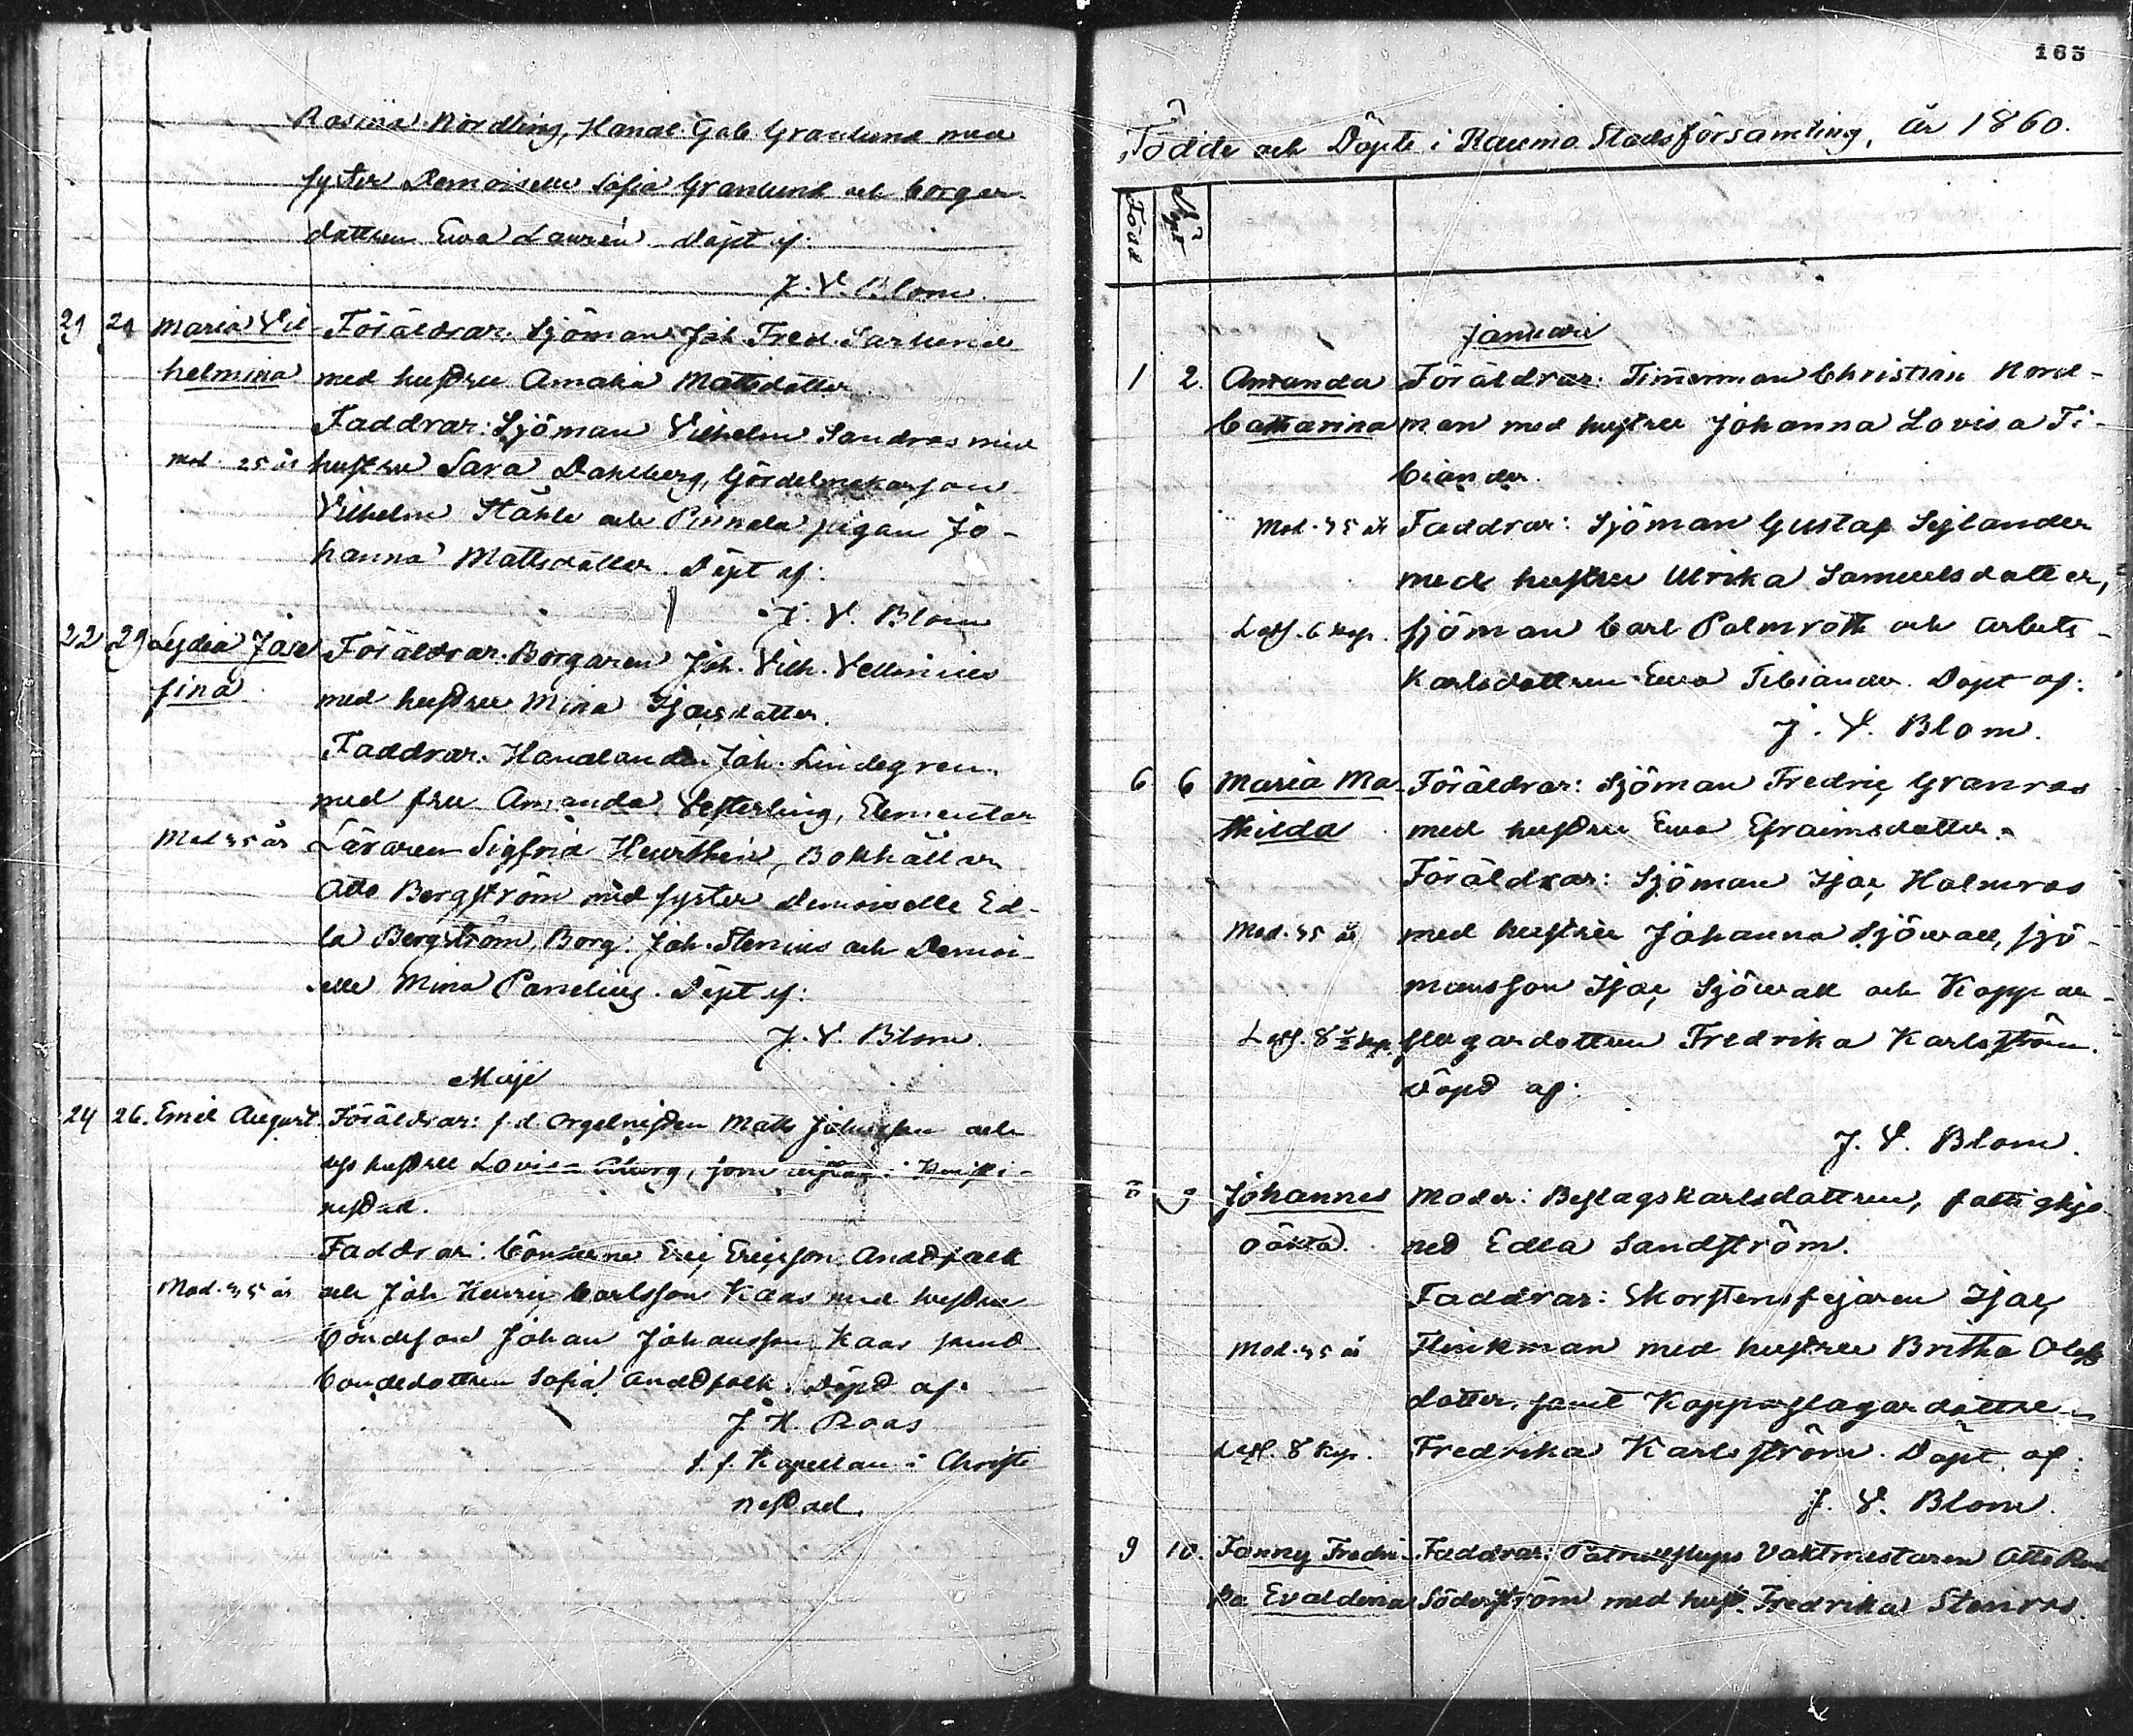 Rosina Nordling, Handl. Gab. Granlund med
syster Demoiselle Sofia Granlund och borgar-
dottren Eva Laurén. Döpt af:
J. V. Blom.
21 24 Maria Vil- Föräldrar: Sjöman Joh. Fred. Sarlund
helmina med hustru Amalia Mattsdotter
Faddrar: Sjöman Vilhelm Sandros med
Mod. 25 år hustru Sara Dahlberg, Gördelmakarson
Vilhelm Ståhle och Pinnala pigan Jo-
hanna Mattsdotter. Döpt af:
J. V. Blom
22 29 Lydia Jose- Föräldrar: Borgaren Joh. Vilh. Vellonius
fina. med hustru Mina Isacsdotter.
Faddrar: Handlanden Joh. Lindegren
med fru Amanda Vesterling, Elementar
Mod 35 år Läraren Sigfrid Heurthén, Bokhållaren
Otto Bergström med syster demoiselle Ed-
la Bergström, Borg. Joh. Stenius och Demoi-
elle Mina Panelius. Döpt af:
J. V. Blom.
Maji
24 26. Emil August. Föräldrar: f. d. Orgelnisten Matts Johnsson och
hustru Lovisa i
nestad.
Faddrar: Bönderne Eric Ericsson Anddfolk
Mod. 35 år och Joh Henric Carlsson Kaas med hustru
bondeson Johan Johansson Kaas samt
bondedottren Sofia Anddfolk. Döpd af:
J. H. Roos
t. f. Kapellan i Christi
nestad.
165
Födde och Döpte i Raumo Stadsförsamling, år 1860.
Född Döpt
Januari
1 2. Amanda Föräldrar: Timmerman Christian Nord-
Catharina man med hustru Johanna Lovisa Ti-
biander.
Mod. 35 år Faddrar: Sjöman Gustaf Seglander
med hustru Ulrika Samuelsdotter,
6 sjöman Carl Palmroth och arbets-
karlsdottren Eva Tibiander. Döpt af:
J. V. Blom.
6 6 Maria Ma- Föräldrar: Sjöman Fredric Granros
thilda med hustru Eva Efraimsdotter.
Föräldrar: Sjöman Isac Holmros
Mod. 35 år med hustru Johanna Sjöwall, sjö-
mansson Isac Sjöwall och Koppar-
8½ slagardottren Fredrika Karlsström.
Döpd af:
J. V. Blom.
8 9 Johannes Moder: Beslagskarlsdottren, fattighjo-
oäkta. net Edla Sandström.
Faddrar: Skorstensfejaren Isac
Mod. 35 år Flinkman med hustru Britha Olofs
dotter, samt Kopparslagardottren
8 Fredrika Karlsström. Döpt af:
J. V. Blom.
9 10. Fanny Fredri- Faddrar: Vaktmästaren Otto
ka Evaldina Söderström med hust. Fredrika Stenros.